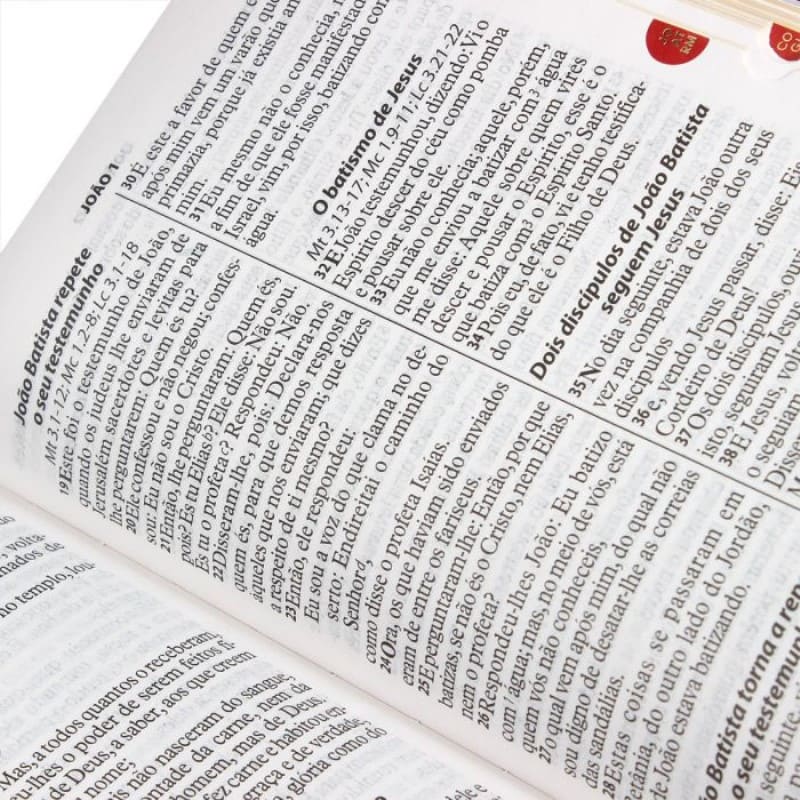 volta-
no templo, lou-
Mas, a todos quantos o receberam,
o poder de serem feitos fi-
de Deus, a saber, aos que creem
nome;
não nasceram do sangue,
da carne, nem da
homem, mas de Deus.
fez carne e habitou en-
graça e de verdade,
glória como do
JOÃO 1
João Batista repete
o seu testemunho
Mt 3.1-12; Mc 1.2-8; Lc 3.1-18
19 Este foi o testemunho de João,
quando os judeus lhe enviaram de
Jerusalém sacerdotes e levitas para
lhe perguntarem: Quem és tu?
20 Ele confessou e não negou; confes-
sou: Eu não sou o Cristo.
21 Então, lhe perguntaram: Quem és,
pois? És tu Elias b? Ele disse: Não sou.
És tu o profeta c? Respondeu: Não.
22 Disseram-lhe, pois: Declara-nos
quem és, para que demos resposta
àqueles que nos enviaram; que dizes
a respeito de ti mesmo?
23 Então, ele respondeu:
Eu sou a voz do que clama no de-
serto: Endireitai o caminho do
Senhor d,
como disse o profeta Isaías.
24 Ora, os que haviam sido enviados
eram de entre os fariseus.
25 E perguntaram-lhe: Então, por que
batizas, se não és o Cristo, nem Elias,
nem o profeta?
26 Respondeu-lhes João: Eu batizo
com 1 água; mas, no meio de vós, está
quem vós não conheceis,
27 o qual vem após mim, do qual não
sou digno de desatar-lhe as correias
das sandálias.
28 Estas coisas se passaram em
Betânia, do outro lado do Jordão,
João estava batizando.
Batista torna a
seu testemu
30 É este a favor de quem e
após mim vem um varão que
primazia, porque já existia an
mim.
31 Eu mesmo não o conhecia, m
a fim de que ele fosse manifestado
Israel, vim, por isso, batizando com
água.
O batismo de Jesus
Mt 3.13-17; Mc 1.9-11; Lc 3.21-22
32 E João testemunhou, dizendo: Vi o
Espírito descer do céu como pomba
e pousar sobre ele.
33 Eu não o conhecia; aquele, porém,
que me enviou a batizar com 3 água
me disse: Aquele sobre quem vires
descer e pousar o Espírito, esse é o
que batiza com 3 o Espírito Santo.
34 Pois eu, de fato, vi e tenho testifica-
do que ele é o Filho de Deus.
Dois discípulos de João Batista
seguem Jesus
35 No dia seguinte, estava João outra
vez na companhia de dois dos seus
discípulos
36 e, vendo Jesus passar, disse: Ei
Cordeiro de Deus!
37 Os dois discípulos, ou
isto, seguiram Jesus
38 E Jesus, volt
o seguiam